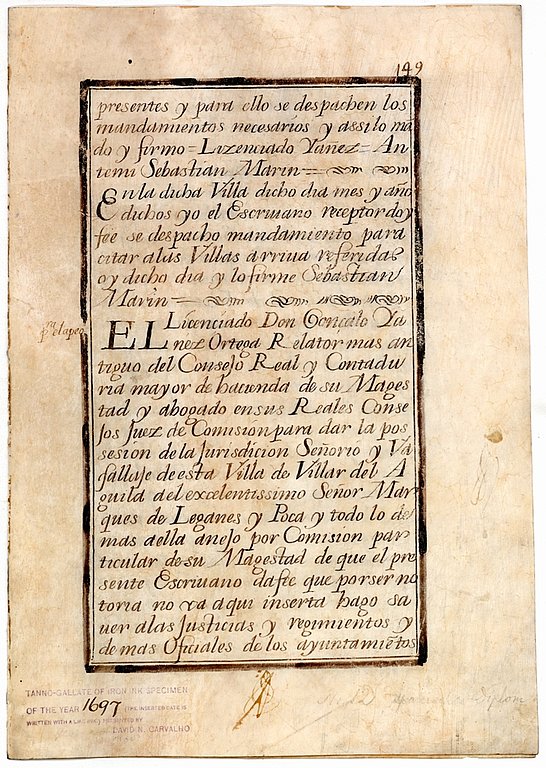 149
presentes y para ello se despachen los
mandamientos necesarios y assilo ma
do y firmo = Lizenciado Yañez = An
temi Sebastian Marin =
En la dicha Villa dicho dia mes y año
dichos yo el Escriuano receptor doy
fee se despacho mandamiento para
citar alas Villas arriua referidas
oy dicho dia y lo firme Sebastian
Marin =
EL Licenciado Don Goncalo Ya
nez Ortega Relator mas an
tiguo del Consejo Real y Contadu
ria mayor de hacienda de su Mages
tad y abogado ensus Reales Conse
jos Juez de Comision para dar la pos
sesion dela Jurisdicion Señorio y Va
sallaje de esta Villa de Villar del A
guila del excelentissimo Señor Mar
ques de Leganes y Poca y todo lo de
mas aella anejo por Comision par
ticular de su Magestad de que el pre
sente Escriuano dafee que porser no
toria no va aqui inserta hago sa
uer alas Justicias y regimientos y
de mas Oficiales de los ayuntamiẽtos
TANNO-GALLATE OF IRON INK SPECIMEN
OF THE YEAR 1697 (THE INSERTED DATE IS
WRITTEN WITH A LIKE INK) PRESENTED BY
DAVID N. CARVALHO